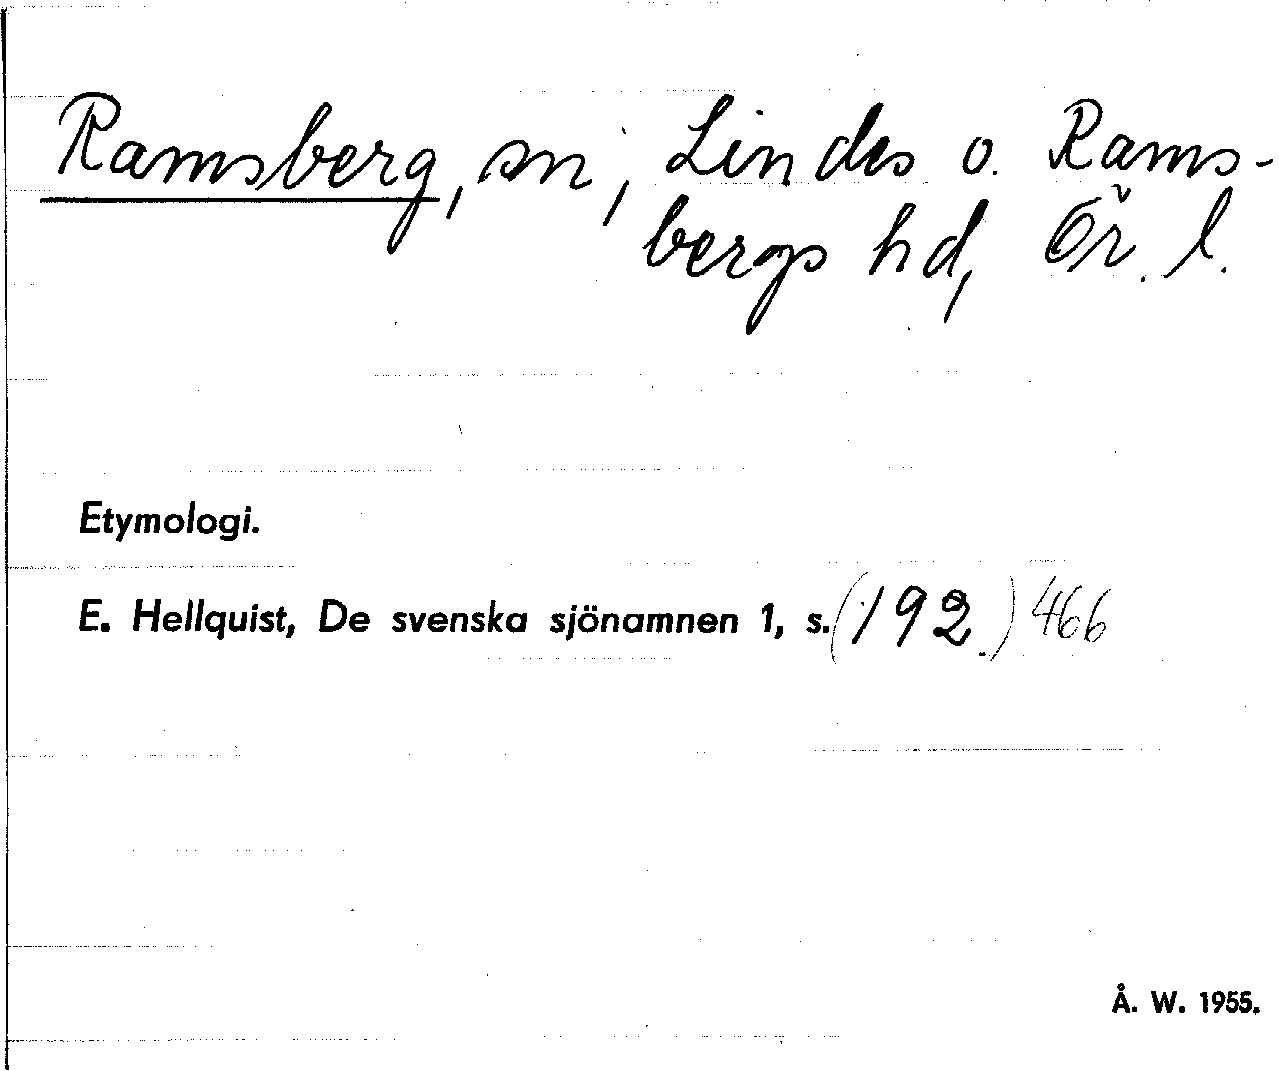 Ramsberg, sn, Lindes o. Rams-
bergs hd, Ör. l.
Etymologi.
E. Hellquist, De svenska sjönamnen 1, s. (192.) 466
Å. W. 1955.